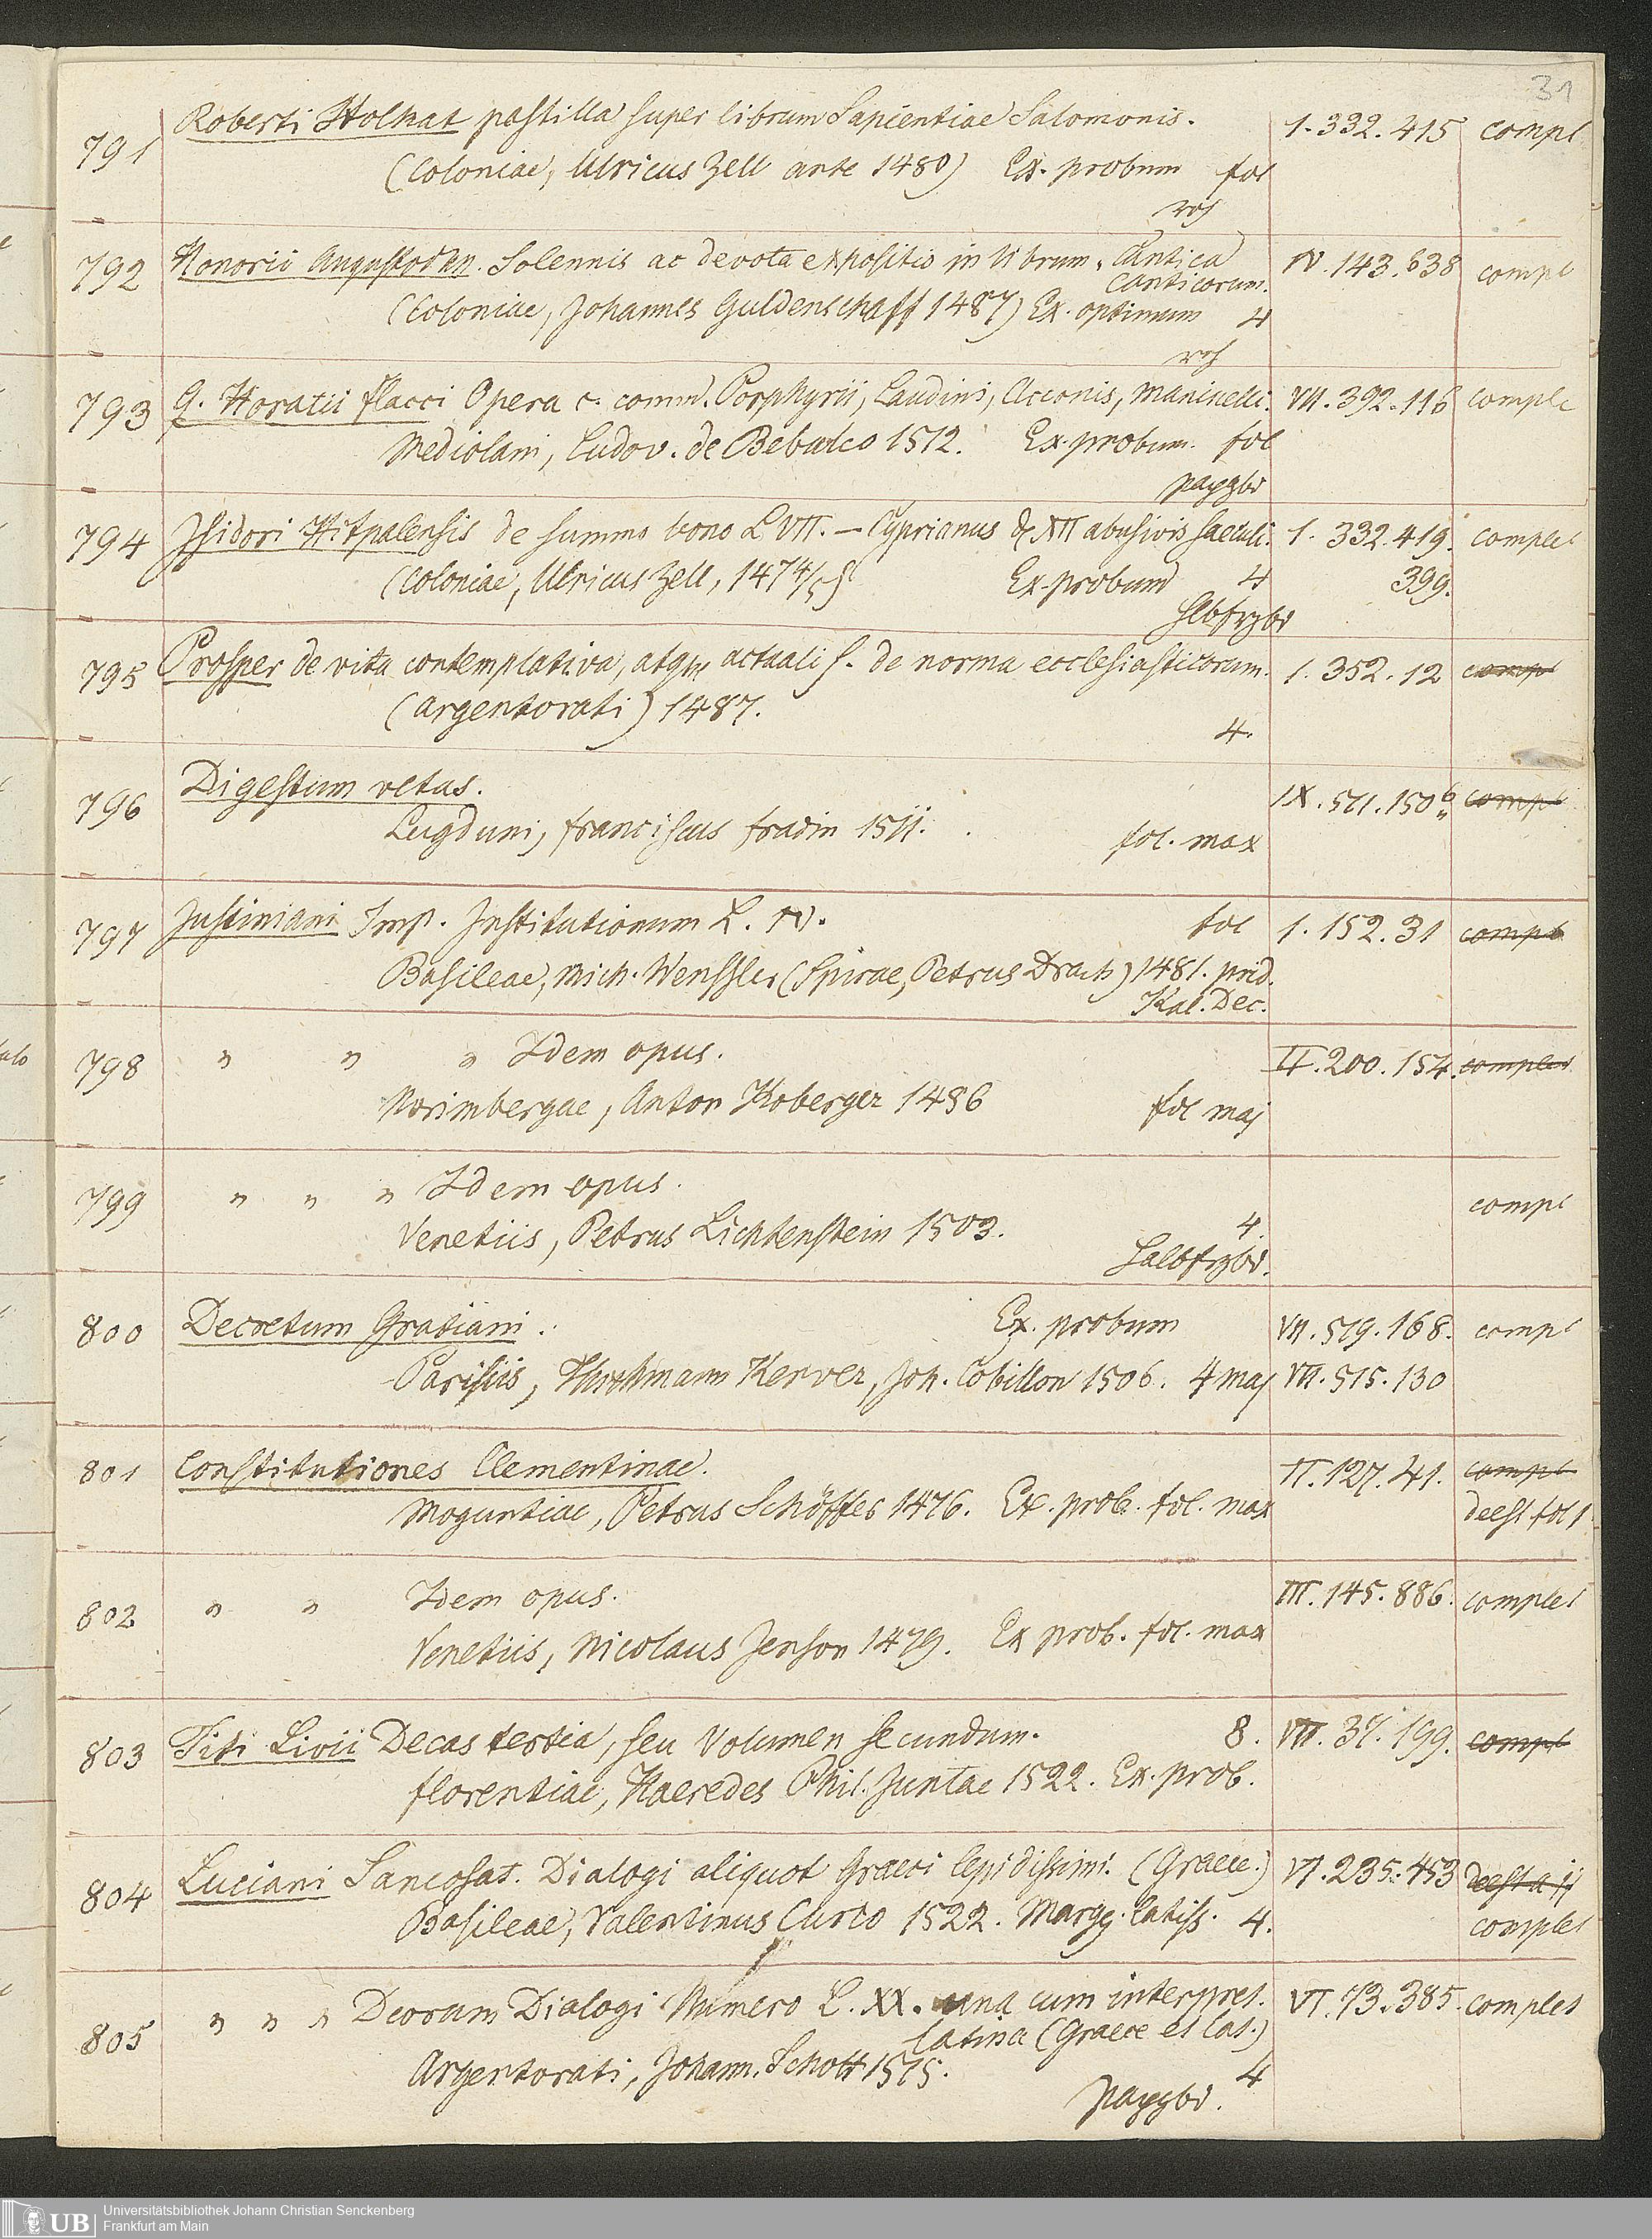 31
791 Roberti Holkat postilla super librum Sapientiae Salomonis. 1. 332. 415 compl
(Coloniae, Ulricus Zell ante 1480) Ex. probum fol
roh
792 Honorii Augustodun. Solennis ac devota expositio in librum Cantica IV. 143. 638 compl
Canticorum.
(Coloniae, Johannes Guldenschaff 1487) Ex. optimum 4
roh
793 Q. Horatii flacci Opera c. comm. Porphyrii, Landini, Acronis, Mancinelli. VII. 392. 116 comple
Mediolani, Ludov. de Bebulco 1512. Ex. probum. fol
pappbd
794 Isidori Hispalensis de summo bono L VII. – Cyprianus de XII abusivis saeculi. 1. 332. 419. complet
(Coloniae, Ulricus Zell, 1474/5) Ex. probum 4 399.
Hlbfrzbd
795 Prosper de vita contemplativa, atque actuali s. de norma ecclesiasticorum. 1. 352. 12 compl
(Argentorati) 1487.
4.
796 Digestum vetus. IX. 511. 150b compl
Lugduni, franciscus fradin 1511. fol. max
797 Justiniani Imp. Institutionum L. IV. fol 1. 152. 31 compl
Basileae, Mich. Wenssler (Spirae, Petrus Drach) 1481. prid.
Kal. Dec.
798 " " " Idem opus. II. 200. 154. complet
Norimbergae, Anton Koberger 1486 fol maj
799 " " " Idem opus. compl
Venetiis, Petrus Lichtenstein 1503. 4.
Halbfrzbd.
800 Decretum Gratiani. Ex. probum VII. 519. 168. compl
Parisiis, Thielmann Kerver, Joh. Cobillon 1506. 4 maj VII. 515. 130
801 Constitutiones Clementinae. II. 127. 41. compl
Moguntiae, Petrus Schöffer 1476. Ex. prob. fol. max deest fol 1
802 " " Idem opus. III. 145. 886. complet
Venetiis, Nicolaus Jenson 1479. Ex prob. fol. max
803 Titi Livii Decas tertia, seu Volumen secundum. 8. VII. 37. 199. compl
florentiae, Haeredes Phil. Juntae 1522. Ex. prob.
804 Luciani Samosat. Dialogi aliquot Graeci lepidissimi. (Graece.) VI. 235. 453 deest a ij
Basileae, Valentinus Curio 1522. Marg. latiss. 4. complet
805 " " " Deorum Dialogi Numero L. XX. una cum interpret. VI. 73. 385. complet
latina (Graece et lat.)
Argentorati, Johann. Schott 1515. 4
pappbd.
UB Universitätsbibliothek Johann Christian Senckenberg
Frankfurt am Main